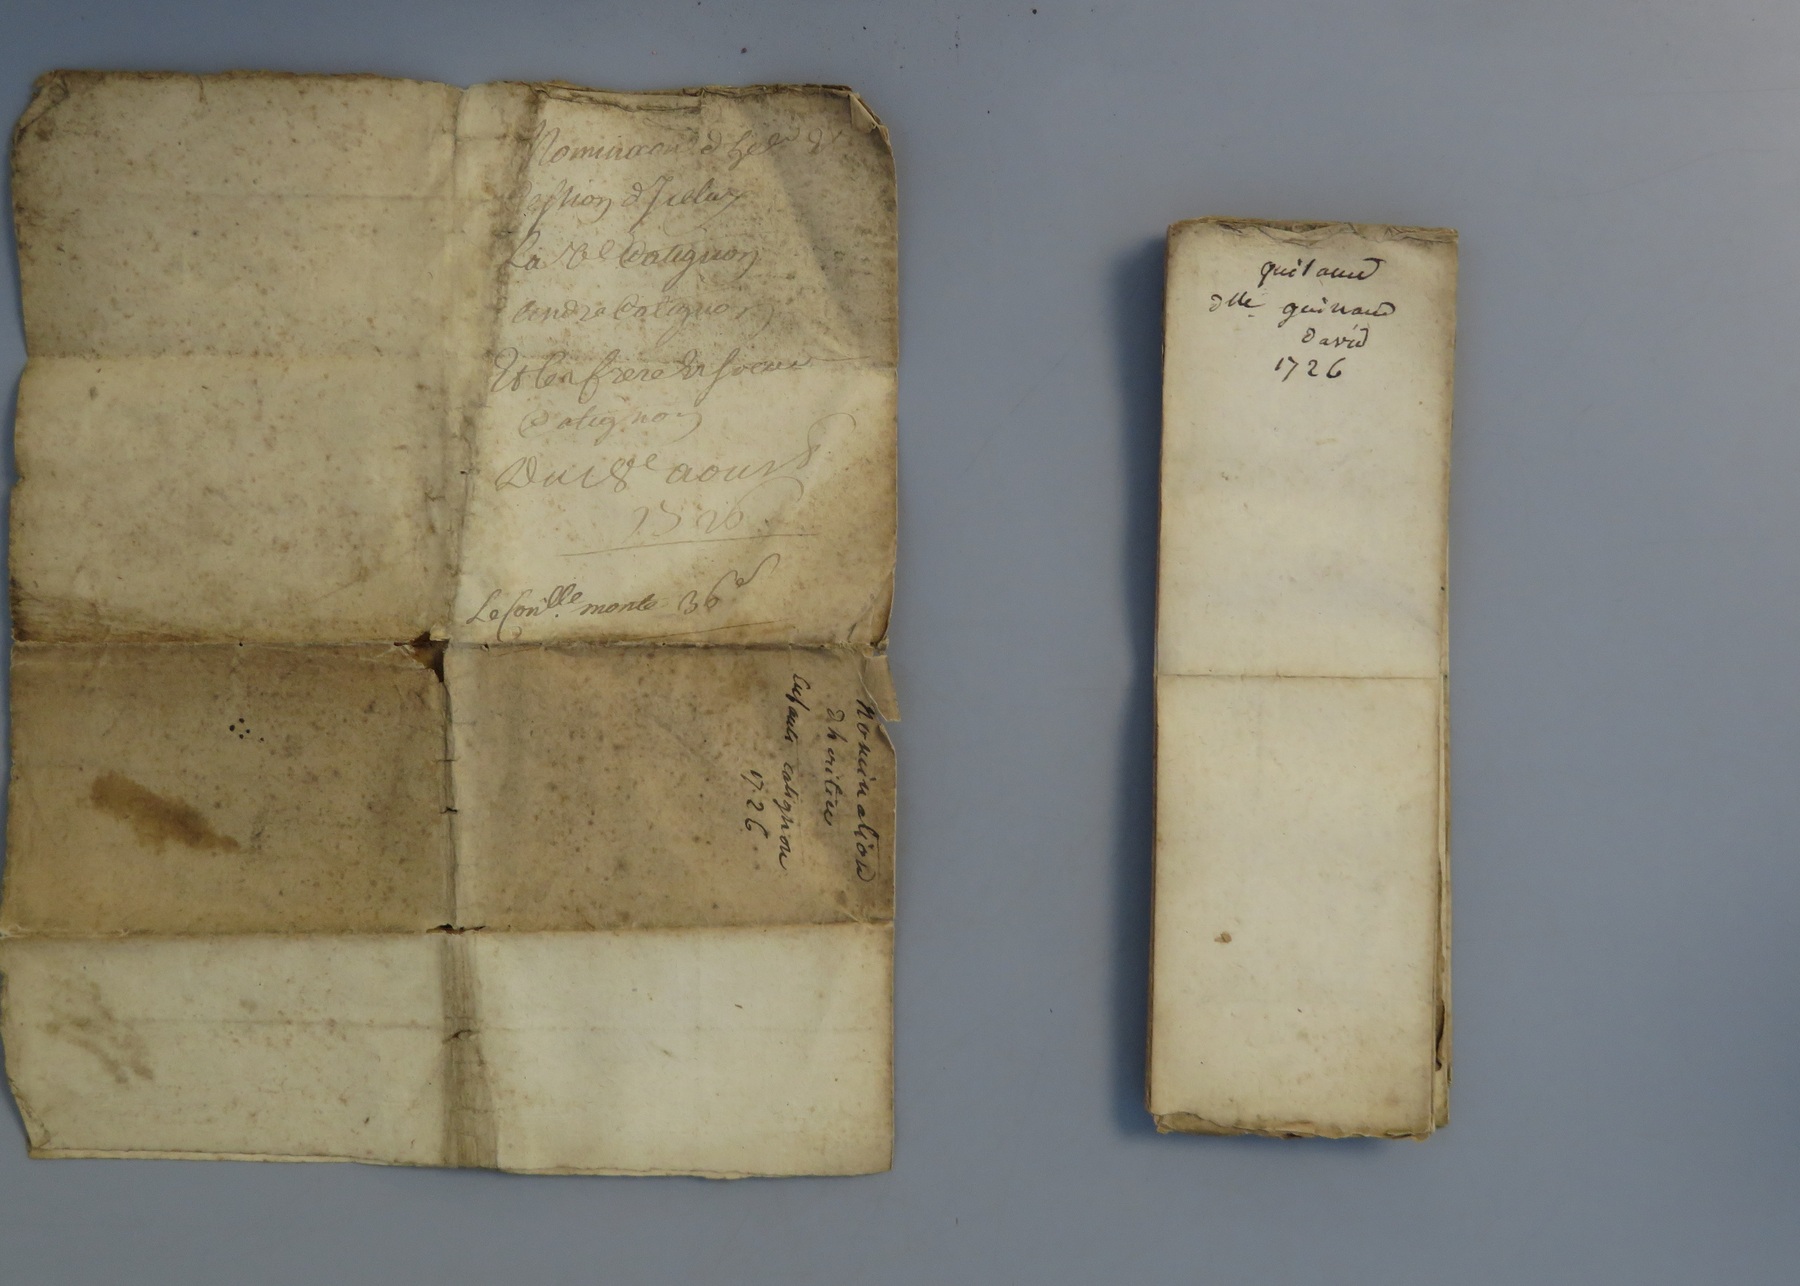 Nominaon d'her &
cession d'
La Ve Catignon
André Catignon
Et les frere & soeur
Catignon
Du 18e aoust
1726
Le conlle monte 36 s
nomination
d heritier
Enfants catignon
1726
quitance
dlle guinand
david
1726